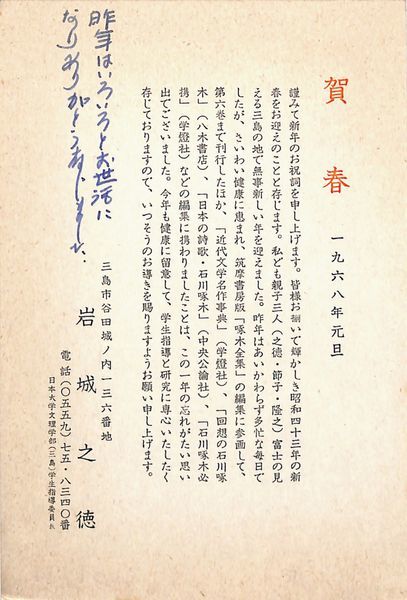 賀春
一九六八年元旦
謹みて新年のお祝詞を申し上げます。皆様お揃いで輝かしき昭和四十三年の新
春をお迎えのことと存じます。私ども親子三人（之徳・節子・隆之）富士の見
える三島の地で無事新しい年を迎えました。昨年はあいかわらず多忙な毎日で
したが、さいわい健康に恵まれ、筑摩書房版「啄木全集」の編集に参画して、
第六巻まで刊行したほか、「近代文学名作事典」（学燈社）、「回想の石川啄
木」（八木書店）、「日本の詩歌・石川啄木」（中央公論社）、「石川啄木必
携」（学燈社）などの編集に携わりましたことは、この一年の忘れがたい思い
出でございました。今年も健康に留意して、学生指導と研究に専心いたしたく
存じておりますので、いつそうのお導きを賜りますようお願い申し上げます。
三島市谷田城ノ内一三六番地
岩城之徳
電話（〇五五九）七五・八三四〇番
日本大学文理学部（三島）学生指導委員長
昨年はいろいろとお世話に
なりありがとうございました